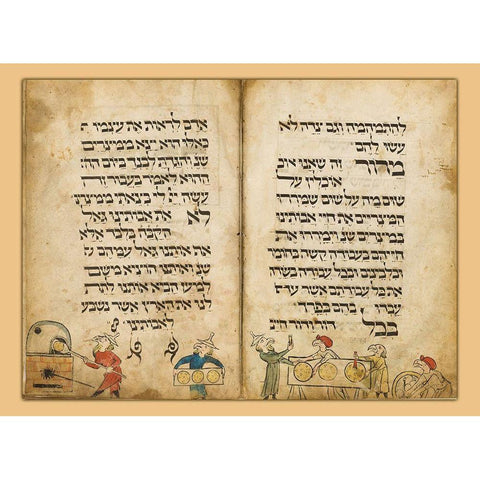 להתמהמה וגם צידה לא
עשו להם
מרור זה שאנו אוכ
אוכלין על
שום מה על שום שמררו
המצריים את חיי אבותינו
במצרים שנ וימררו את
חייהם בעבודה קשה בחומר
ובלבנים ובכל עבודה בשדה
את כל עבודתם אשר עבדו
בהם בפרך
בכל דור ודור חייב
אדם לראות את עצמו כ
כאילו הוא יצא ממצרים
שנ והגדת לבנך ביום
ההוא לאמר בעבור זה
עשה יי לי בצאתי ממצרים
לא את אבותינו גאל
הקבה בלבד אלא
אף אותנו גאל עמהם שנ
ואותנו הוציא משם
למען הביא אותנו לתת
לנו את הארץ אשר נשבע
לאבותינו